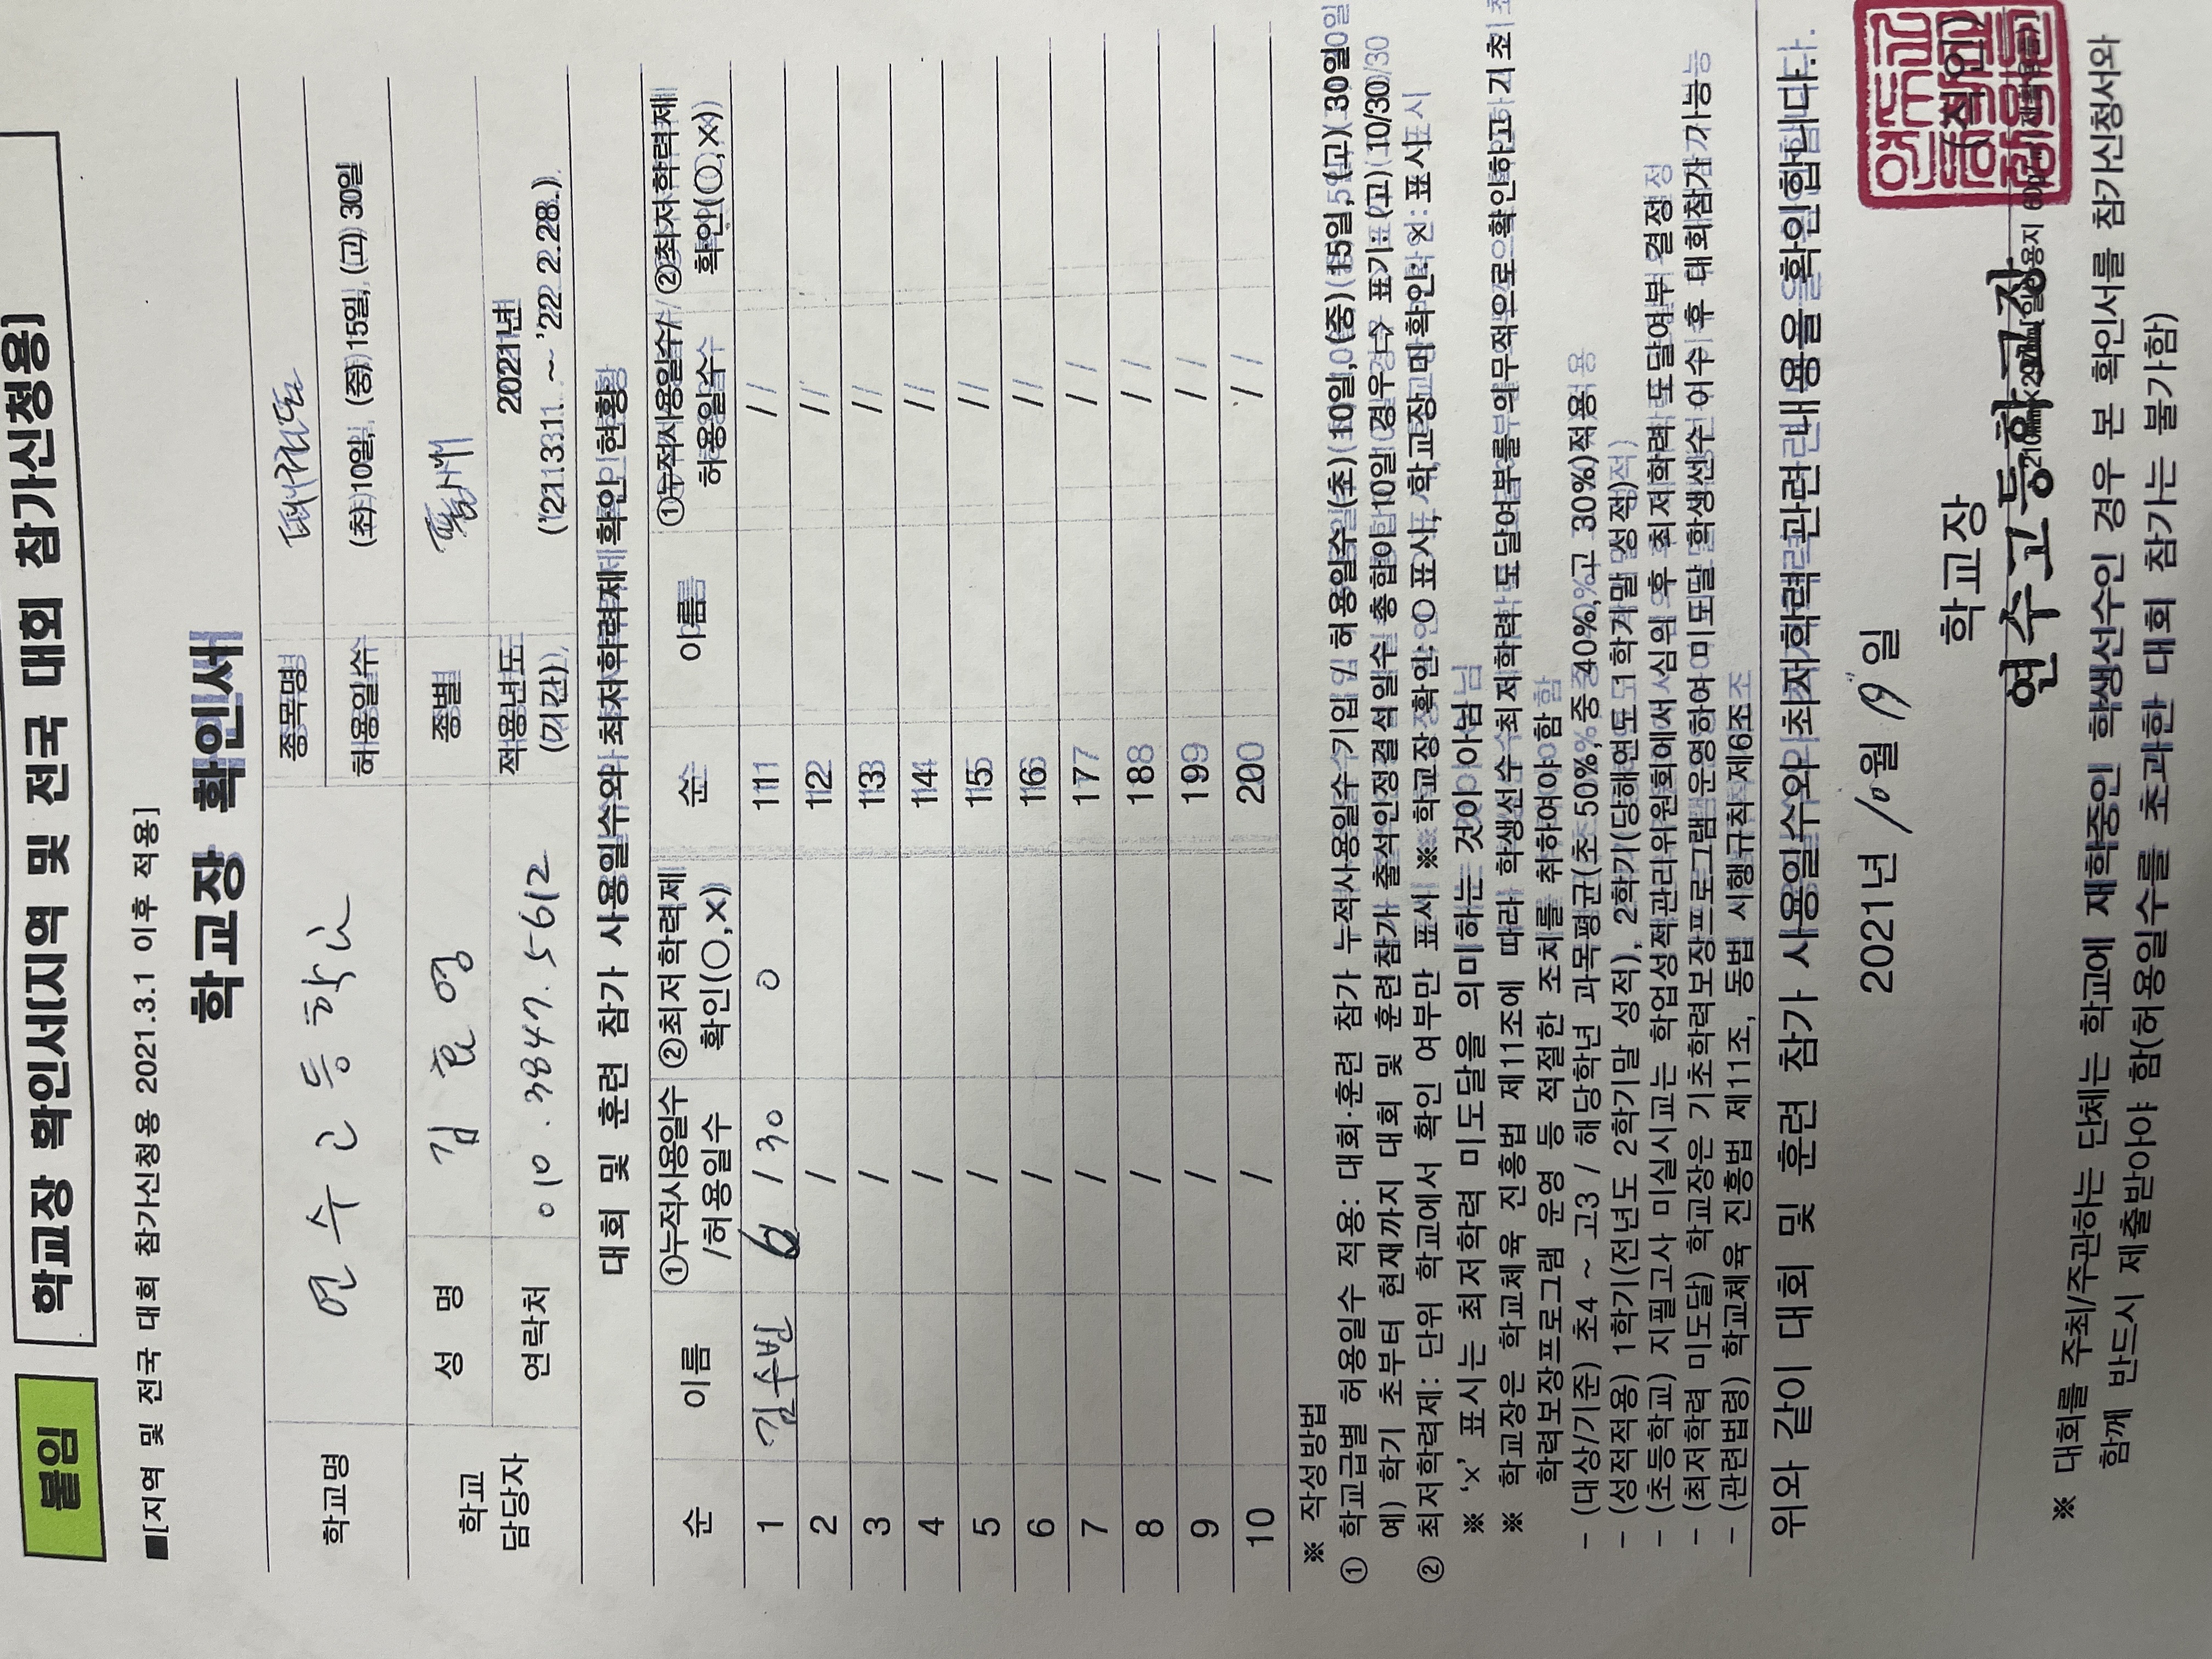 붙임 학교장 확인서(지역 및 전국 대회 참가신청용)
■[지역 및 전국 대회 참가신청용 2021.3.1 이후 적용]
학교장 확인서
학교명 연수고등학교 종목명 태권도
허용일수 (초)10일, (중)15일, (고)30일
학교 담당자 성 명 김효영 종별 품새
연락처 010.3847.5612 적용년도 (기간) 2021년 ('21.3.1 ~ '22 2.28.)
대회 및 훈련 참가 사용일수와 최저학력제 확인 현황
순 이름 ①누적사용일수/허용일수 ②최저학력제 확인(○,×) 순 이름 ①누적사용일수/허용일수 ②최저학력제 확인(○,×)
1 김수빈 6 / 30 ○ 11 /
2 / 12 /
3 / 13 /
4 / 14 /
5 / 15 /
6 / 16 /
7 / 17 /
8 / 18 /
9 / 19 /
10 / 20 /
※ 작성방법
① 학교급별 허용일수 적용: 대회·훈련 참가 누적사용일수 기입 / 허용일수 (초)10일, (중)15일, (고)30일
예) 학기 초부터 현재까지 대회 및 훈련참가 출석인정결석일수 총합이 10일 경우 → 표기: (고) 10/30
② 최저학력제: 단위 학교에서 확인 여부만 표시 ※ 학교장 확인: ○ 표시, 학교장 미확인: × 표시
※ '×' 표시는 최저학력 미도달을 의미하는 것이 아님
※ 학교장은 학교체육 진흥법 제11조에 따라 학생선수 최저학력 도달여부를 의무적으로 확인하고 기초
학력보장프로그램 운영 등 적절한 조치를 취하여야 함
- (대상/기준) 초4 ~ 고3 / 해당학년 과목평균(초 50%, 중 40%, 고 30%)적용
- (성적적용) 1학기(전년도 2학기말 성적), 2학기(당해연도 1학기말 성적)
- (초등학교) 지필고사 미실시교는 학업성적관리위원회에서 심의 후 최저학력 도달여부 결정
- (최저학력 미도달) 학교장은 기초학력보장프로그램 운영하여 미도달 학생선수 이수 후 대회참가 가능
- (관련법령) 학교체육 진흥법 제11조, 동법 시행규칙 제6조
위와 같이 대회 및 훈련 참가 사용일수와 최저학력 관련 내용을 확인합니다.
2021년 10월 19일
학교장 (직인)
연수고등학교장
※ 대회를 주최/주관하는 단체는 학교에 재학중인 학생선수인 경우 본 확인서를 참가신청서와
함께 반드시 제출받아야 함(허용일수를 초과한 대회 참가는 불가함)